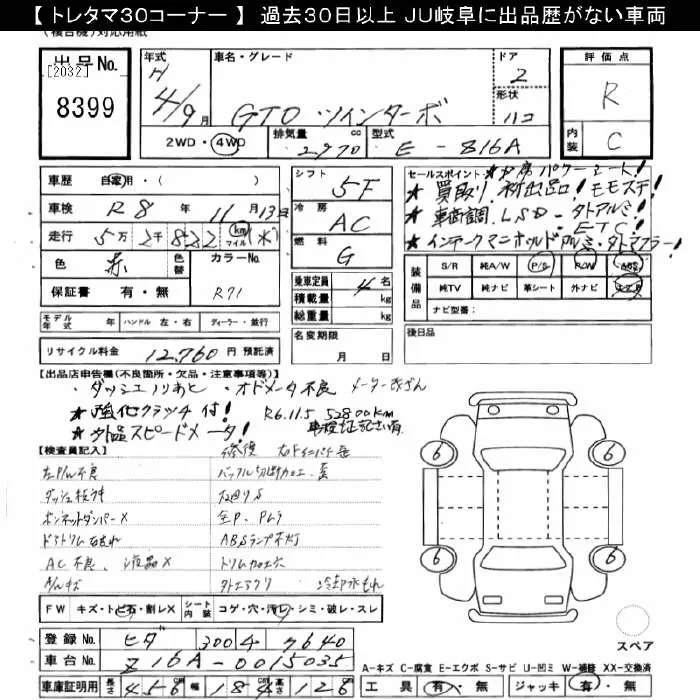 【 トレタマ30コーナー 】 過去30日以上 JU岐阜に出品歴がない車両
(複合機)対応用紙
出品No.
[2032]
8399
年式 H 4/9月
車名・グレード
GTO・ツインターボ
ドア 2
形状 ハコ
2WD・4WD
排気量 2970 cc
型式 E-816A
評価点
R
内装 C
車歴 自家用・( )
車検 R8 年 11月 13日
走行 5万 2千 822 km マイル
色 赤 色替 カラーNo. R71
保証書 有・無
モデル年式 年 ハンドル 左・右 ディーラー・並行
リサイクル料金 12,760 円 預託済
シフト 5F
冷房 AC
燃料 G
乗車定員 4 名
積載量 kg
総重量 kg
名変期限
月 日
セールスポイント
★買取り 初出品! モモステ!
★車高調 LSD・タトアルミ!
ETC!
★インテークマニホルドアルミ・タトマフラー!
装備品
S/R 純A/W P/S P/W ABS
純TV 純ナビ 革シート 外ナビ エアB
ナビ型番:
後日品
【出品店申告欄(不良箇所・欠品・注意事項等)】
・ダッシュノリあと ・オドメータ不良 メーター改ざん
★強化クラッチ付! R6.11.5 52800km
★外品スピードメータ! 車検証記さい有
【検査員記入】
ダッシュ
ボンネットダンパーX
ABSランプ不灯
AC不良、液晶X
冷却水もれ
FW キズ・トビ石・割レX シート内装 コゲ・穴・汚レ・シミ・破レ・スレ
6
6
6
6
スペア
登録No. ヒダ 300 4 7640
車台No. Z16A-0015035
車庫証明用 長さ 456 cm 幅 184 cm 高さ 126 cm
A-キズ C-腐食 E-エクボ S-サビ U-凹ミ W-補修 XX-交換済
工具 有・無 ジャッキ 有・無